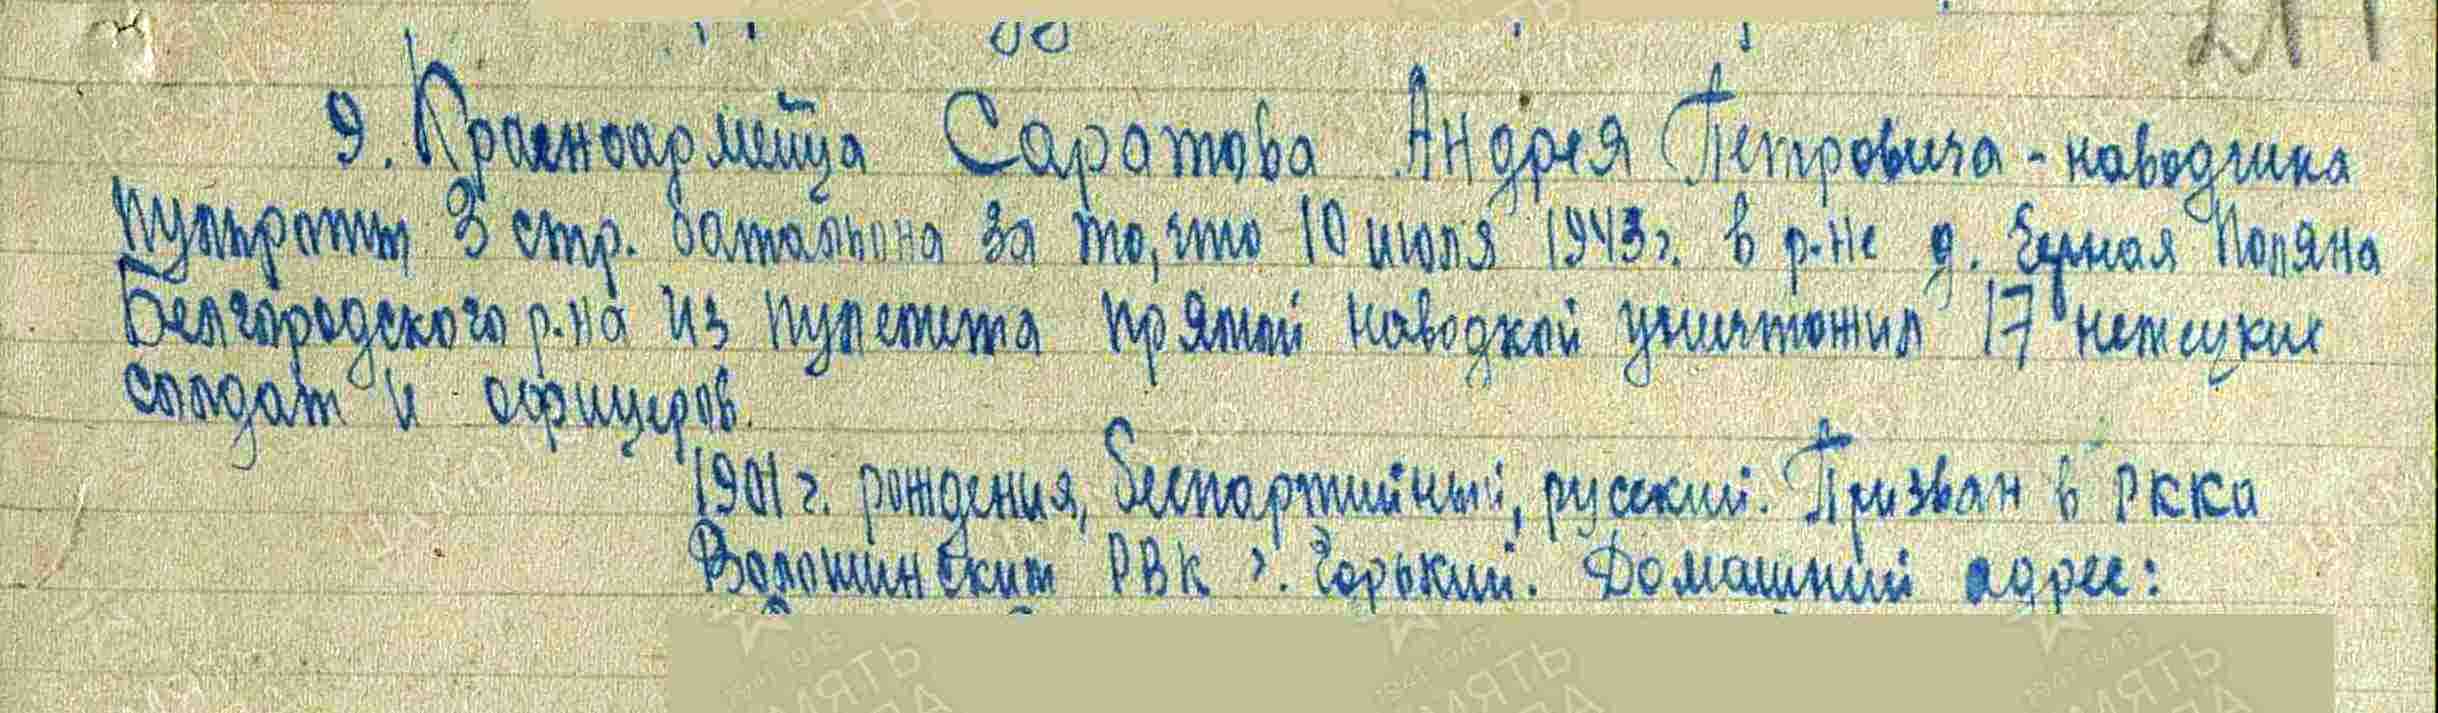 9. Красноармейца Саратова Андрея Петровича - наводчика
пульроты 3 стр. батальона за то, что 10 июля 1943 г. в р-не д. Ерная Поляна
Белгородского р-на из пулемета прямой наводкой уничтожил 17 немецких
солдат и офицеров.
1901 г. рождения, беспартийный, русский. Призван в РККА
Ворошинским РВК г. Горький. Домашний адрес: